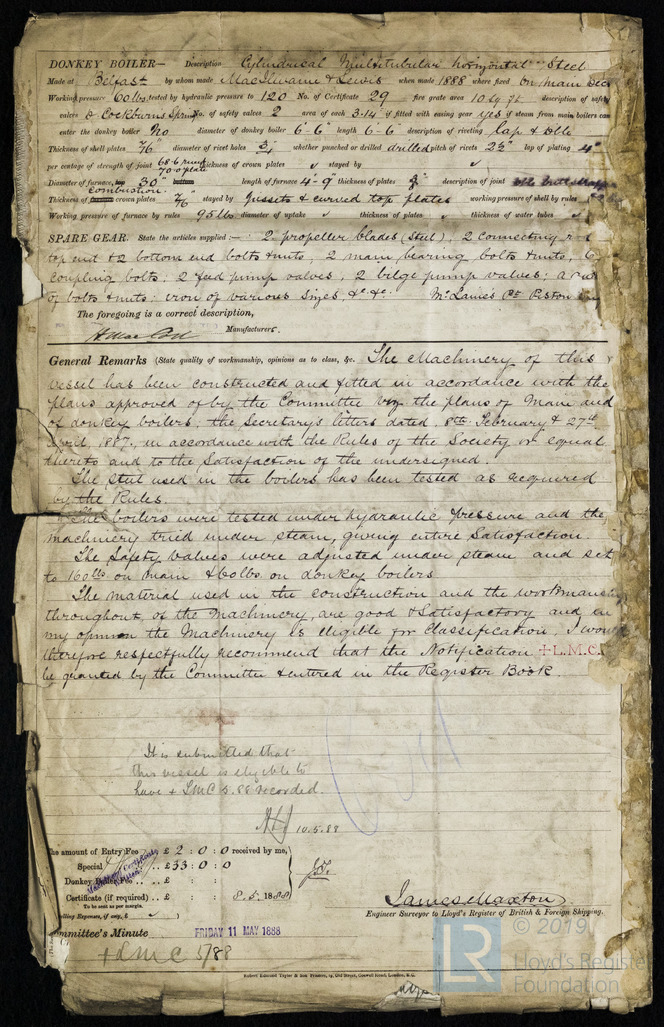 DONKEY BOILER— Description Cylindrical Multitubular horizontal Steel
Made at Belfast by whom made MacIlwaine & Lewis when made 1888 where fixed On Main Deck
Working pressure 60 lbs tested by hydraulic pressure to 120 No. of Certificate 29 fire grate area 10 sq ft description of safety
valves & Cockburns Spring No. of safety valves 2 area of each 3.14 if fitted with easing gear yes if steam from main boilers can
enter the donkey boiler No diameter of donkey boiler 6'-6" length 6'-6" description of riveting Lap & Dble
Thickness of shell plates 7/16" diameter of rivet holes 3/4 whether punched or drilled drilled pitch of rivets 2 1/2" lap of plating 4"
per centage of strength of joint 68.6 70.0 plate thickness of crown plates stayed by
Diameter of furnace, top 30" bottom length of furnace 4'-9" thickness of plates description of joint
Thickness of combustion crown plates 7/16" stayed by gussets & curved top plates working pressure of shell by rules
Working pressure of furnace by rules 95 lbs diameter of uptake thickness of plates thickness of water tubes
SPARE GEAR. State the articles supplied:— 2 propeller blades (Steel), 2 connecting
top end & 2 bottom end bolts & nuts, 2 main bearing bolts & nuts, 6
coupling bolts, 2 feed pump valves, 2 bilge pump valves; a
of bolts & nuts; iron of various sizes, &c &c. Piston
The foregoing is a correct description,
Manufacturers.
General Remarks (State quality of workmanship, opinions as to class, &c. The Machinery of this
vessel has been constructed and fitted in accordance with the
plans approved of by the Committee viz the plans of Main and
of donkey boilers, the Secretary's letters dated, 8th February & 27th
April, 1887, in accordance with the Rules of the Society or equal
thereto and to the Satisfaction of the undersigned.
The steel used in the boilers has been tested as required
by the Rules.
The boilers were tested under hydraulic pressure and the
machinery tried under steam, giving entire Satisfaction.
The Safety Valves were adjusted under steam and set
to 160 lbs on main & 60 lbs. on donkey boilers
The material used in the construction and the workmanship
throughout, of the Machinery, are good & Satisfactory and in
my opinion the Machinery is eligible for Classification, I would
therefore respectfully recommend that the Notification + L.M.C.
be granted by the Committee & entered in the Register Book.
It is submitted that
this vessel is eligible to
have + LMC 5.88 recorded.
10.5.88
The amount of Entry Fee .. £ 2 : 0 : 0 received by me,
Special .. £ 33 : 0 : 0
Donkey Boiler Fee .. .. £ : :
Certificate (if required) .. £ : : 8.5.1888
To be sent as per margin.
(Travelling Expenses, if any, £ )
James Maxton
Engineer Surveyor to Lloyd's Register of British & Foreign Shipping.
Committee's Minute FRIDAY 11 MAY 1888
+ LMC 5/88
© 2019
LR
Lloyd's Register
Foundation